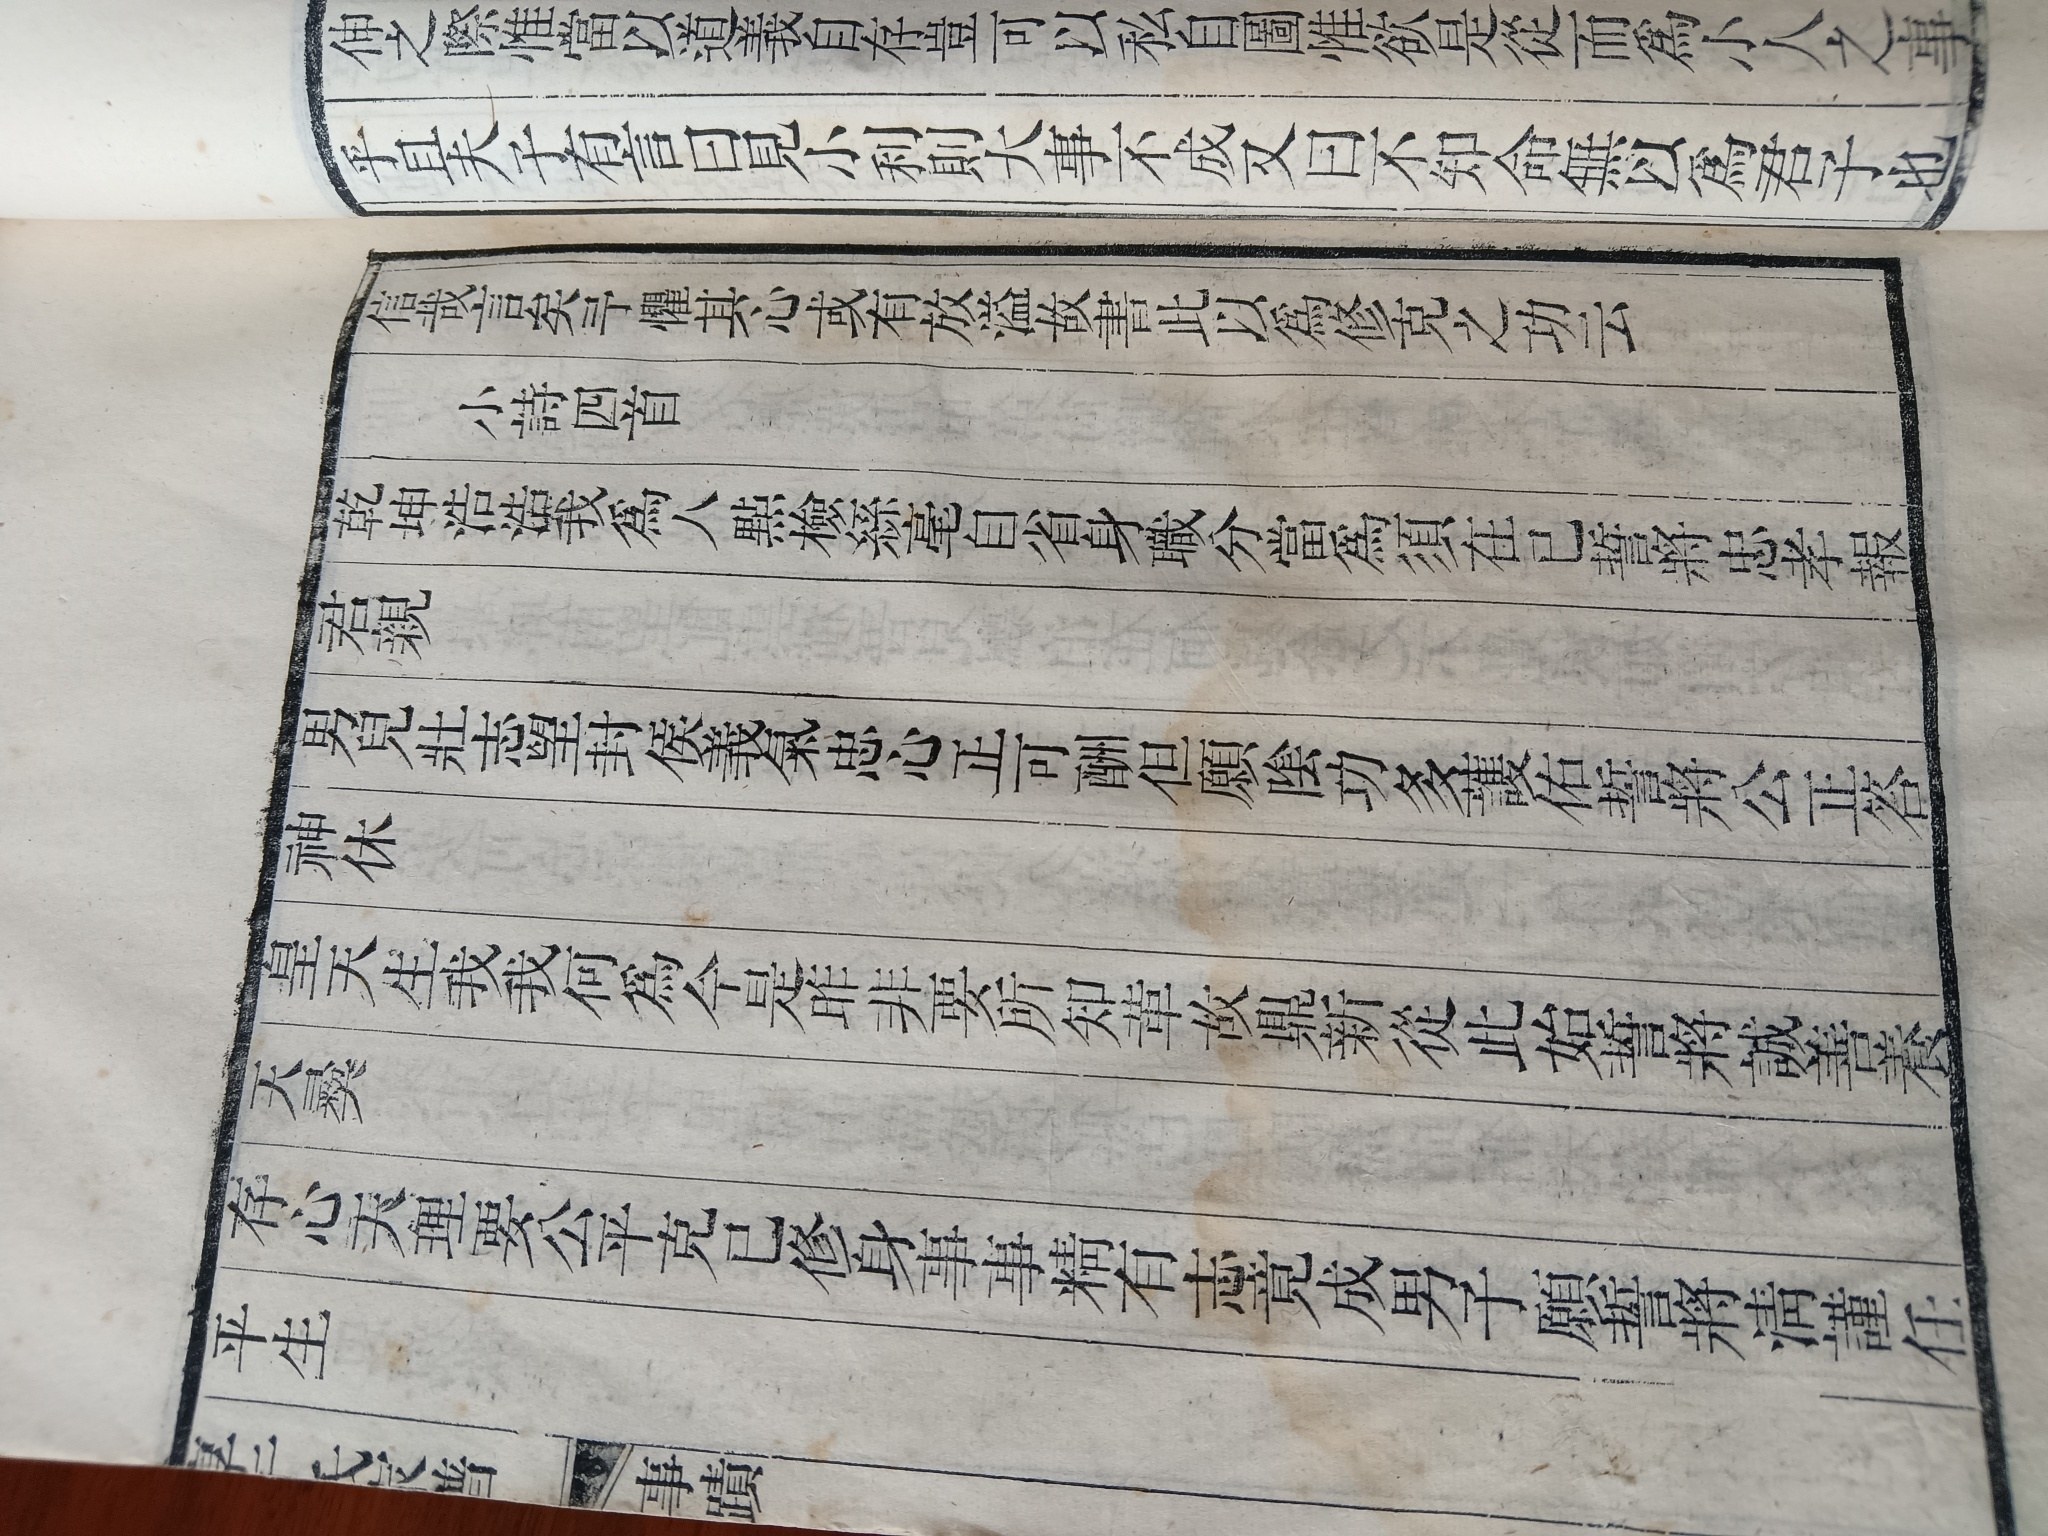 伸之際惟當以道義自存豈可以私自圖惟欲是從而爲小人之事
乎且夫子有言曰見小利則大事不成又曰不知命無以爲君子也
信哉言矣予懼其心或有放溢故書此以爲修克之功云
小詩四首
乾坤浩浩我爲人點檢絲毫自省身職分當爲須在己誓將忠孝報
君親
男兒壯志望封侯義氣忠心正可酬但願陰功多護佑誓將公正答
神休
皇天生我我何爲今是昨非要所知革故鼎新從此始誓將誠善養
天彝
存心天理要公平克己修身事事精有志竟成男子願誓將清謹任
平生
事蹟